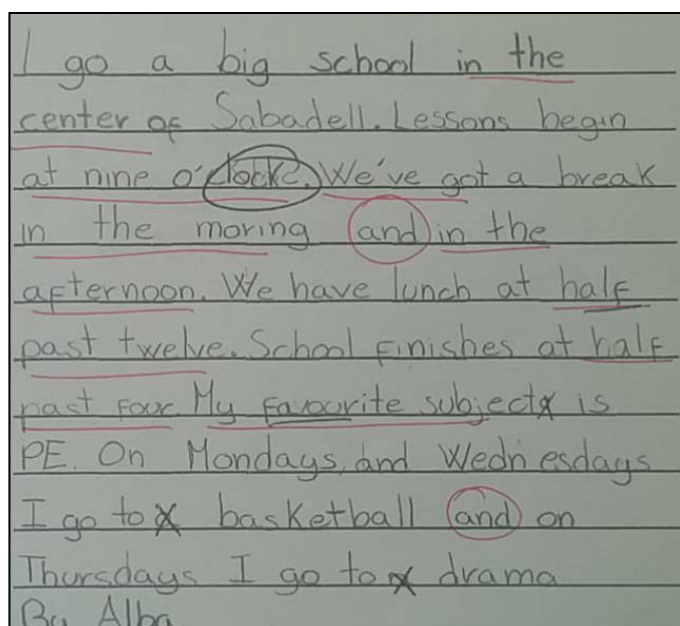 I go a big school in the
center of Sabadell. Lessons begin
at nine o'clocke. We've got a break
in the moring and in the
afternoon. We have lunch at half
past twelve. School finishes at half
past four. My favourite subject is
PE. On Mondays, and Wednesdays
I go to basketball and on
Thursdays I go to drama
By Alba